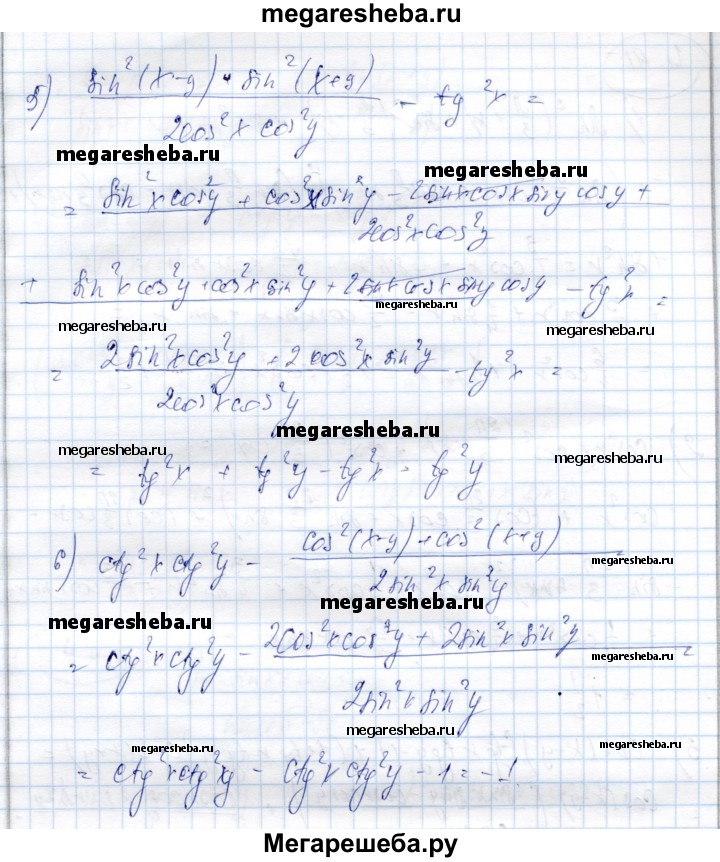 megaresheba.ru
5) (sin²(x-y) + sin²(x+y)) / (2cos²x cos²y) - tg²x =
megaresheba.ru megaresheba.ru
= (sin²x cos²y + cos²x sin²y - 2sinx cosx siny cosy +) / (2cos²x cos²y)
+ sin²x cos²y + cos²x sin²y + 2sinx cosx siny cosy - tg²x =
megaresheba.ru megaresheba.ru megaresheba.ru
= (2sin²x cos²y + 2cos²x sin²y) / (2cos²x cos²y) - tg²x =
megaresheba.ru
megaresheba.ru
= tg²x + tg²y - tg²x = tg²y
megaresheba.ru
6) ctg²x ctg²y - (cos²(x-y) + cos²(x+y)) / (2sin²x sin²y) =
megaresheba.ru
megaresheba.ru
megaresheba.ru
= ctg²x ctg²y - (2cos²x cos²y + 2sin²x sin²y) / (2sin²x sin²y) =
megaresheba.ru
megaresheba.ru megaresheba.ru
= ctg²x ctg²y - ctg²x ctg²y - 1 = -1
megaresheba.ru
megaresheba.ru
Мегарешеба.ру